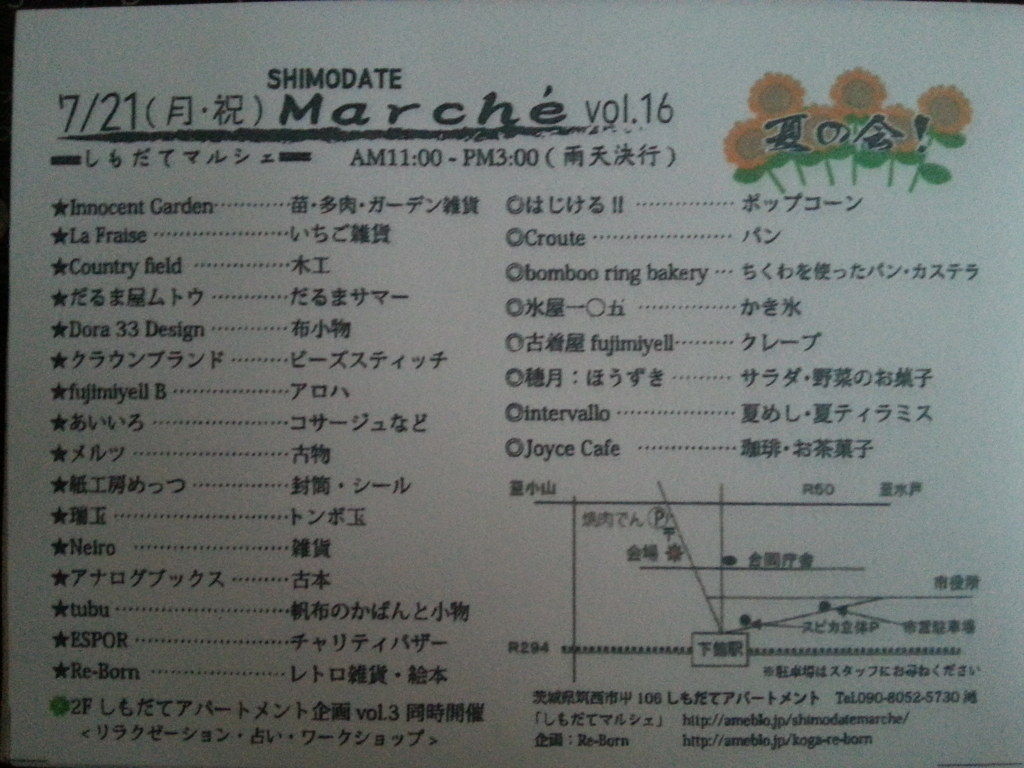 SHIMODATE
7/21(月・祝) Marché vol.16
しもだてマルシェ AM11:00 - PM3:00 (雨天決行)
夏の会!
★Innocent Garden············苗・多肉・ガーデン雑貨
★La Fraise ··················いちご雑貨
★Country field ·············木工
★だるま屋ムトウ ·········だるまサマー
★Dora 33 Design ··········布小物
★クラウンブランド ·······ビーズスティッチ
★fujimiyell B ···············アロハ
★あいいろ ···················コサージュなど
★メルツ ······················古物
★紙工房めっつ ·············封筒・シール
★瑞玉 ························トンボ玉
★Neiro ······················雑貨
★アナログブックス ·······古本
★tubu ························帆布のかばんと小物
★ESPOR ····················チャリティバザー
★Re-Born ···················レトロ雑貨・絵本
2F しもだてアパートメント企画 vol.3 同時開催
<リラクゼーション・占い・ワークショップ>
◎はじける!! ···············ポップコーン
◎Croute ·····················パン
◎bomboo ring bakery ···ちくわを使ったパン・カステラ
◎氷屋一〇五 ···············かき氷
◎古着屋 fujimiyell·········クレープ
◎穂月:ほうずき ·········サラダ・野菜のお菓子
◎intervallo ················夏めし・夏ティラミス
◎Joyce Cafe ··············珈琲・お茶菓子
至小山 R50 至水戸
焼肉でん P
〒
会場
合同庁舎
市役所
スピカ立体P 市営駐車場
R294 下館駅
※駐車場はスタッフにお尋ねください
茨城県筑西市甲 106 しもだてアパートメント Tel.090-8052-5730
「しもだてマルシェ」 http://ameblo.jp/shimodatemarche/
企画:Re-Born http://ameblo.jp/koga-re-born